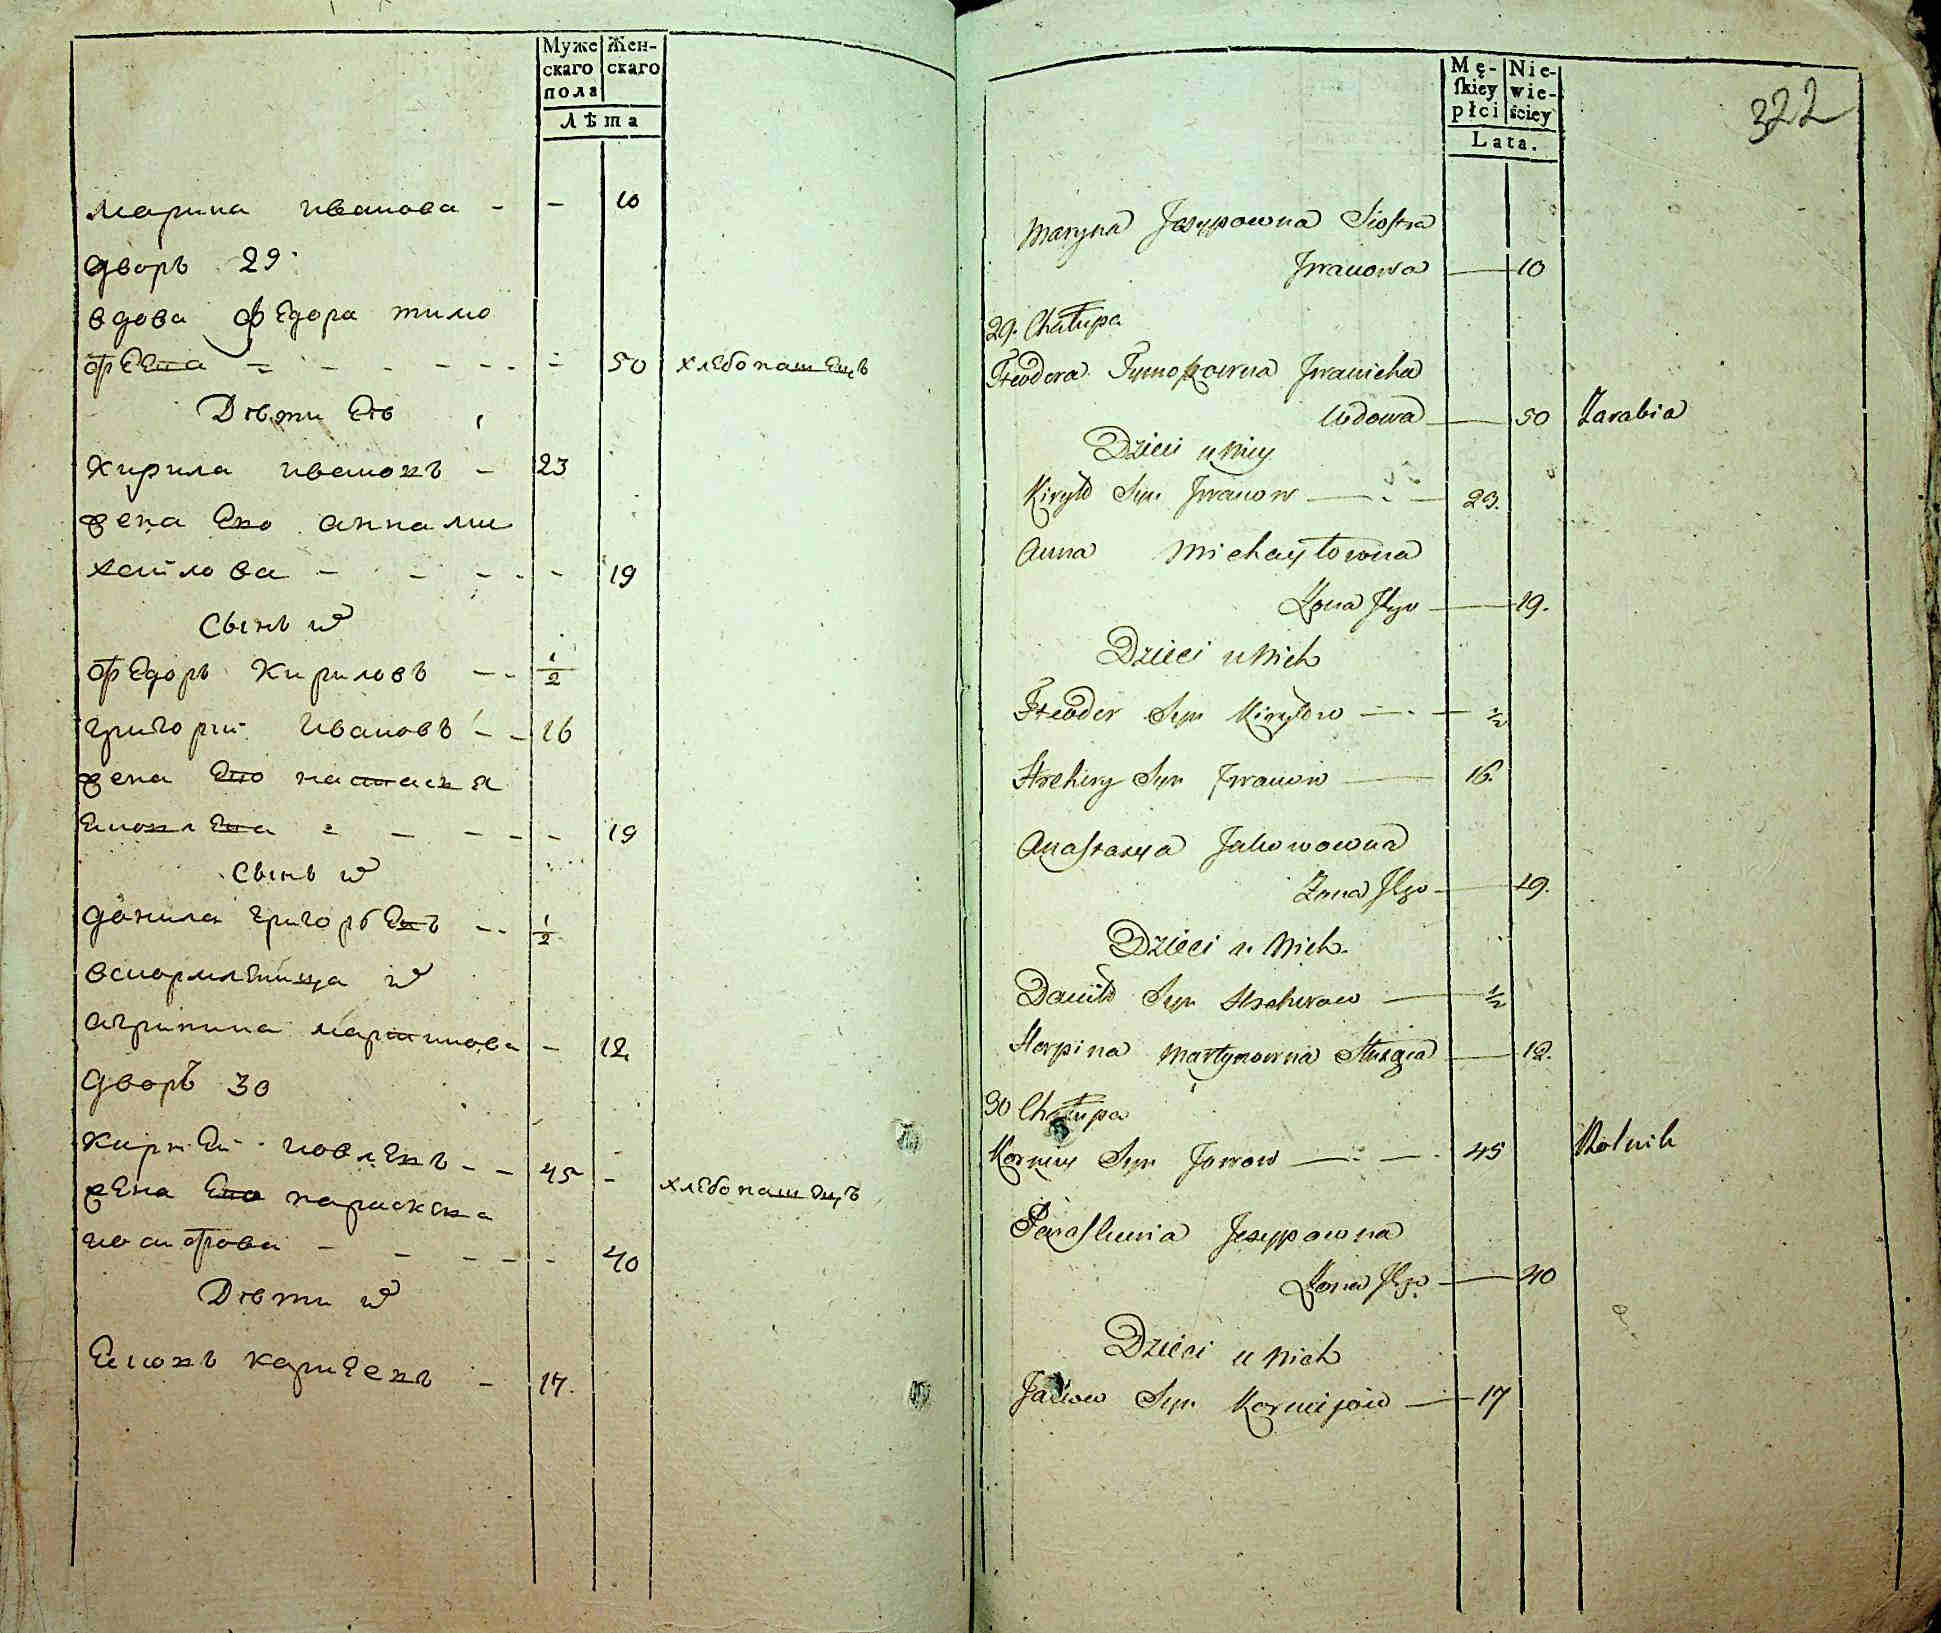 Муже
скаго
пола
Жен-
скаго
Лѣта
Марина иванова - - 10
дворъ 29
вдова федора тимо
феева - - - - - - 50 хлебопашецъ
Дѣти еѣ
Кирила ивановъ - 23
жена его анна ми
хайлова - - - - - 19
Сынъ ихъ
федоръ Кириловъ - - 1/2
григории ивановъ - - 16
жена его настасья
- - - - - 19
Сынъ ихъ
данила григорьевъ - - 1/2
ихъ
агрипина мартинова - 12
дворъ 30
- - 45 - хлебопашецъ
жена его
иосифова - - - - - 40
Дѣти ихъ
- 17.
Mę-
ſkiey
płci
Nie-
wie-
ściey
Lata.
322
Maryna Jozypowna Siostra
Jwanowa — 10
29. Chałupa
Fteodora Tymoszowna Jwanicha
Wdowa — 50 Zarabia
Dzieci u Niey
Kiryło Syn Jwanow — - — 23.
Anna Michayłowna
Żona Jego — 19.
Dzieci u Nich
Fteodor Syn Kiryłow — - — 1/2
Hrehiry Syn Jwanow — 16
Anastazya Jakowowna
Żona Jego — 19.
Dzieci u Nich.
Daniło Syn Hrehirow — 1/2
Horpina Martynowna Sługa — 12.
30 Chałupa
Korniey Syn — - — - 45 Rolnik
Paraskewia Jozypowna
Żona Jego — 40
Dzieci u Nich
Jakow Syn Korniejow — 17